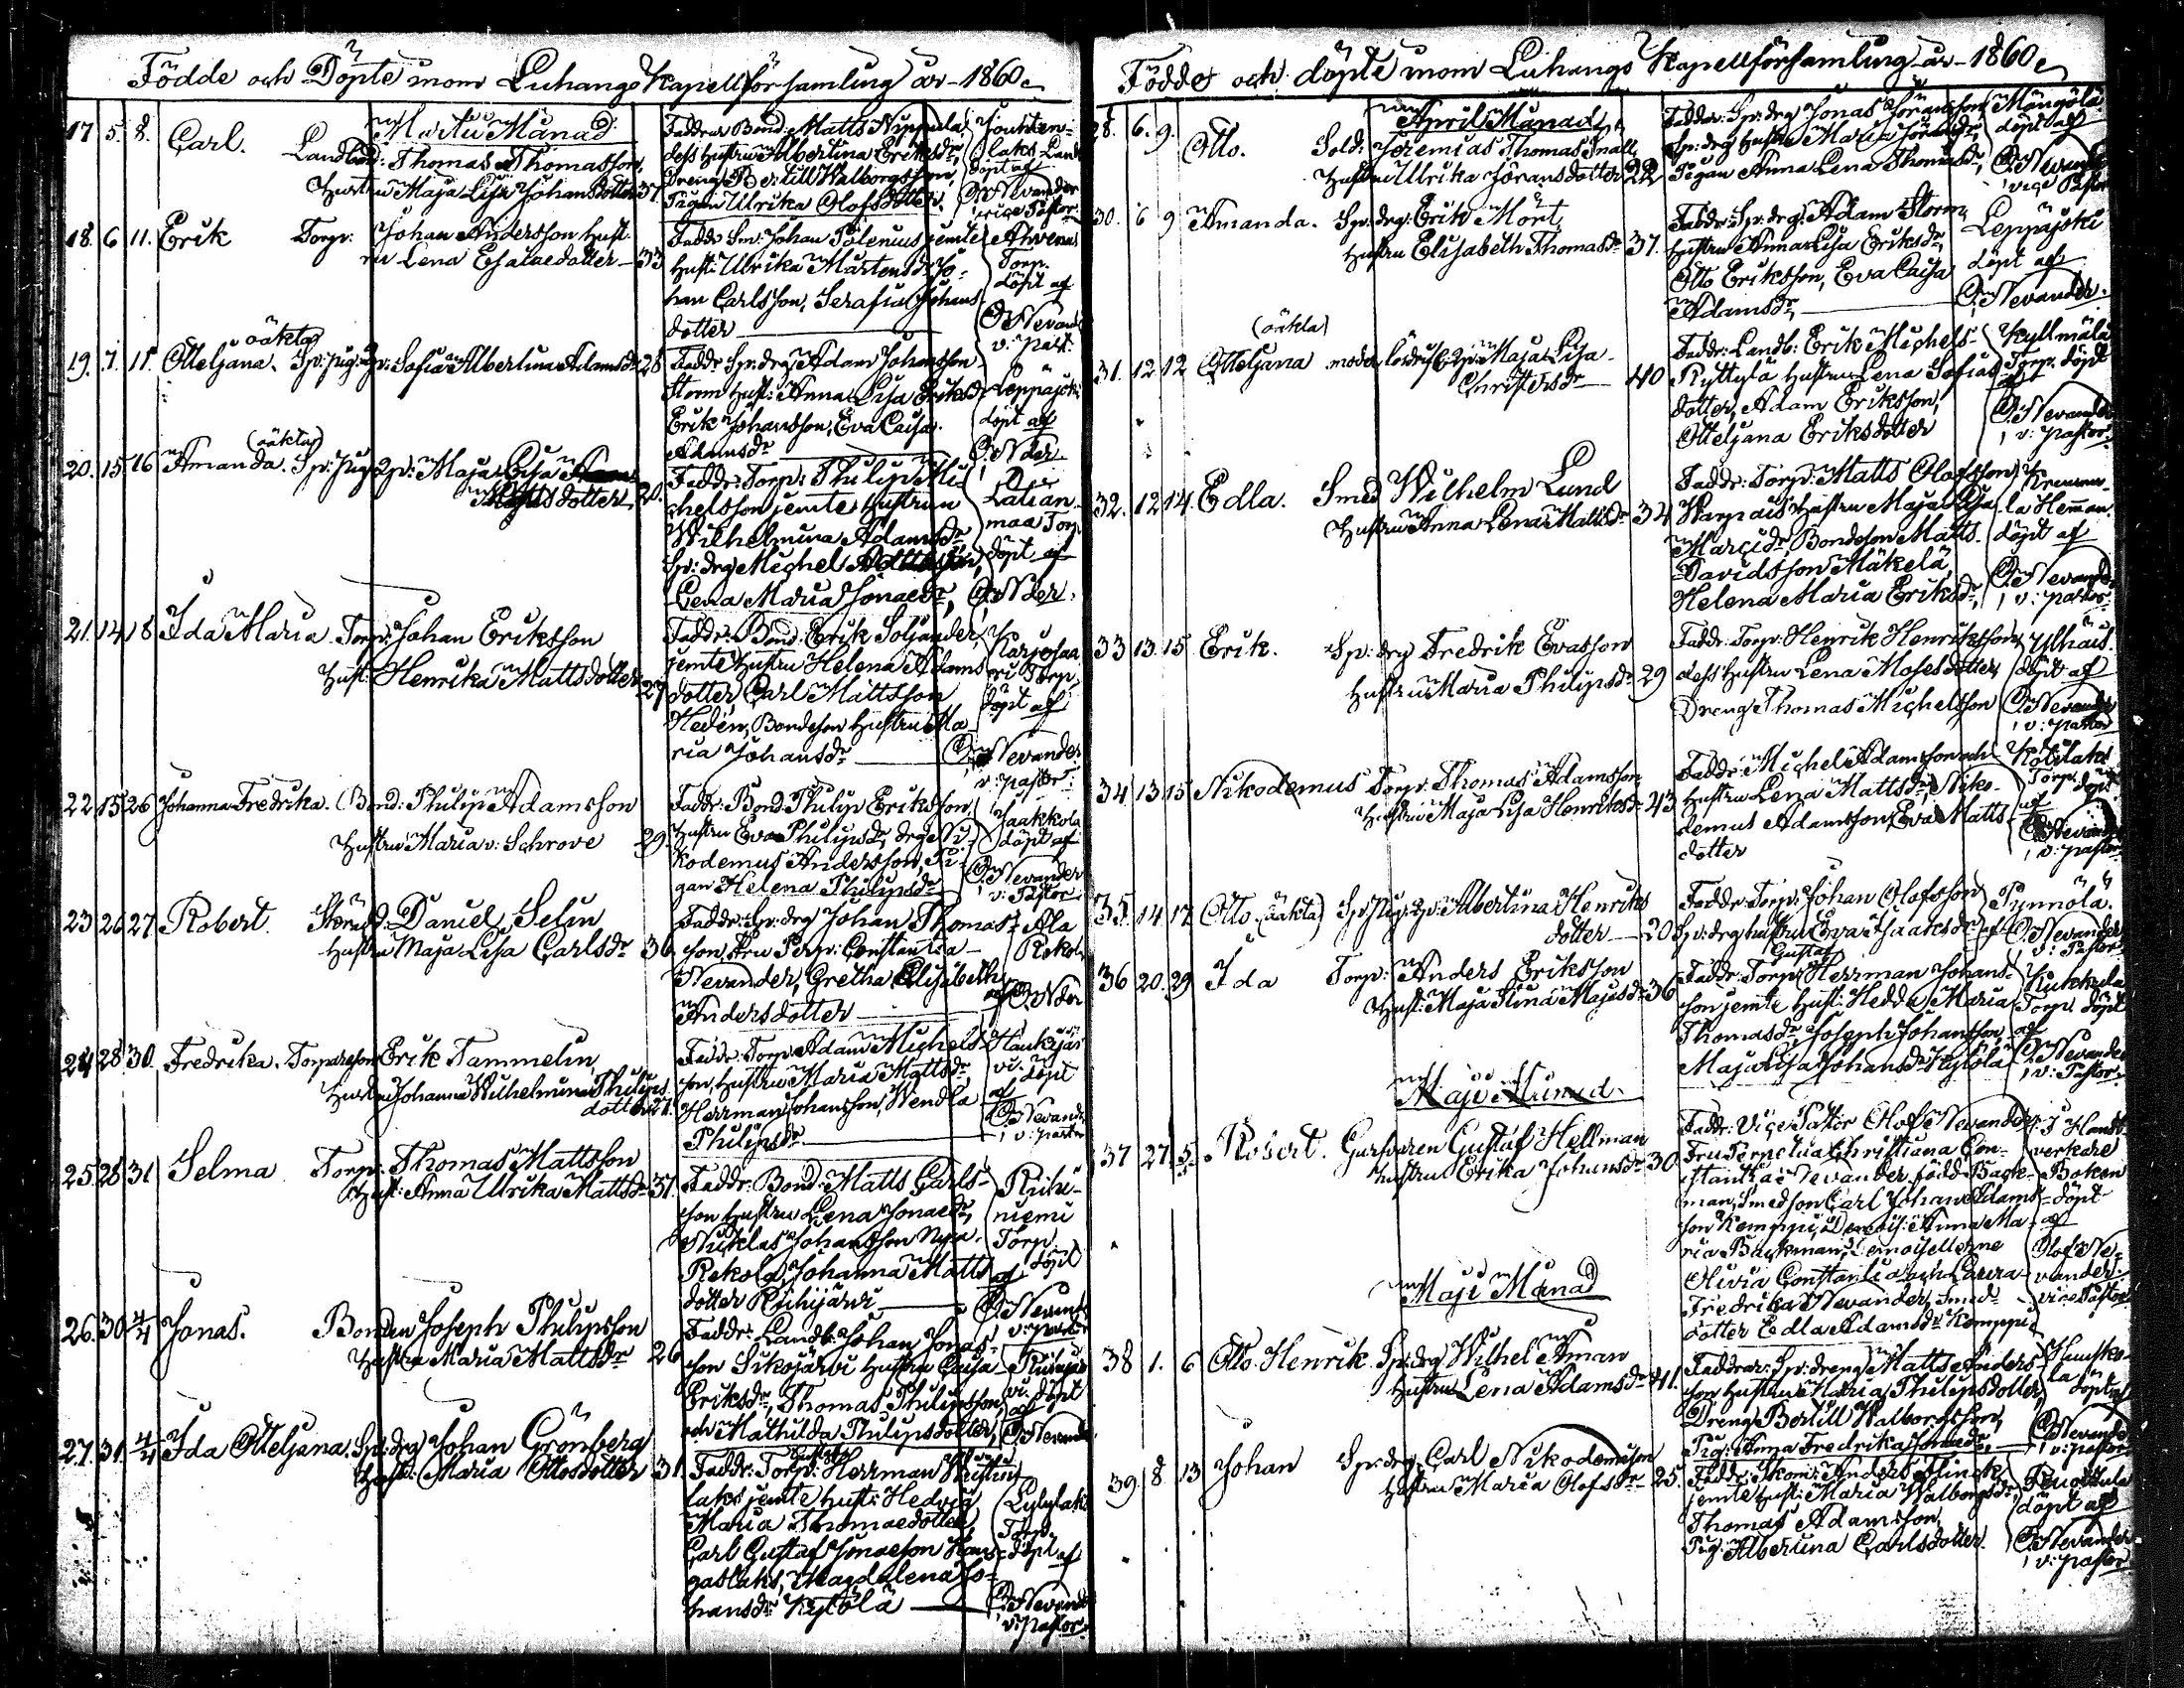 Födde och Döpte inom Luhango Kapellförsamling år 1860
Martii Månad
17 5. 8. Carl. Landbond: Thomas Thomasson,
Hustru Maja Lisa Johansdotter 37.
Faddrar Bond: Matts Nippula,
dess hustru Albertina Eriksdr,
Dreng Bertill Walborgsson,
Pigan Ulrika Olofsdotter.
döpt af
O. Nevander
vice Pastor
18. 6 11. Erik Torpr: Johan Andersson Hust-
ru Lena Esaiaedotter 33
Faddr Sm: Johan Polenius jemte
Hust: Ulrika Mårtensdr, Jo-
han Carlsson, Serafia Johans
dotter
Torp.
döpt af
O. Nevand
v: Past:
oäkta
19. 7. 11. Otteljana. Sp: pig: Sofia Albertina Adamsdr 28
Faddr Sp: drg Adam Johansson
Storm Hust: Anna Lisa Eriksdr
Erik Johansson, Eva Caisa
Adamsdr
Leppäjoki
döpt af
O. Nder
(oäkta)
20. 15 16 Amanda. Sp: pig: Maja Lisa
Mattsdotter 20.
Faddr: Torp: Philip Mi-
chelsson jemte Hustrun
Wilhelmina Adamsdr
Sp: drg Michel
Lena Maria Jonaedr,
maa Torp
döpt af
O. Nder.
21. 14 18 Ida Maria Torp: Johan Eriksson
Hust: Henrika Mattsdotter 27
Faddr: Bond: Erik Soljander,
jemte Hustru Helena Adams
dotter Carl Mattsson
Hedén, Bondeson Hustru Ma-
ria Johansdr
Karjosaa
ri Torp
döpt af
O. Nevander
v: pastor
22 15 26 Johanna Fredrika. Bond: Philip Adamsson
Hustru Maria v: Schrove 29
Faddr: Bond Philip Eriksson,
Hustru Eva Philipsdr, drg Ni-
kodemus Andersson, Pi-
gan Helena Philipsdr
Jaakkola
döpt af
O. Nevander
v: Pastor
23 26 27 Robert. Daniel Selin
Hustru Maja Lisa Carlsdr 36
Faddr: Sp: drg Johan Thomas-
son, Fru Perp: Constantia
Nevander, Gretha Elisabeth
Andersdotter
Ala
Rekola
af O. Nder
24 28 30. Fredrika. Torpareson Erik Tammelin,
Hustru Johanna Wilhelmina Philips
dotter 27.
Faddr: Torp Adam Michels-
son, hustru Maria Mattsdr
Herrman Johansson, Wendla
Philipsdr
Haukijär
vi. döpt
af
O. Nevand
v: pastor
25 28 31 Selma Torp: Thomas Mattsson
Hust: Anna Ulrika Mattsdr 37.
Faddr: Bond: Matts Carls-
son hustru Lena Jonaedr,
Nicklas Johansson
Rekola, Johanna Matts
dotter
niemi
Torp
döpt
af
O. Nevand
v: pastor
26. 30 4/4 Jonas. Bonden Joseph Philipsson
Hustru Maria Mattsdr 26
Faddr: Landb: Johan Jonas-
son Sikojärvi hustru Caisa
Eriksdr, Thomas Philipsson
och Mathilda Philipsdotter,
vi. döpt
af
O. Nevand
27. 31 4/4 Ida Otteljana. Sp: drg Johan Grönberg
Hust: Maria Ottosdotter 31
Faddr: Torp: Herrman
laks jemte hust: Hedvig
Maria Thomaedotter,
Carl Gustaf Jonaeson
gaslaks, Magdalena Jo-
hansdr Kytölä
Torp.
döpt af
O. Nevand
v: pastor
Födde och döpte inom Luhango Kapellförsamling år 1860
April Månad
28. 6. 9. Otto. Sold: Jeremias Thomas Snäll,
Hustru Ulrika Joransdotter 22
Faddrar: Sp: drg Jonas Joransson,
Sp: drg hustru Maria Joransdr,
Pigan Anna Lena Thomasdr,
döpt af
O. Nevander
vice Pastor
30. 6 9 Amanda. Sp: drg: Erik Mört,
Hustru Elisabeth Thomasdr 37.
Faddr: Sp: drg: Adam Storm,
hustru Anna Lisa Eriksdr,
Otto Eriksson, Eva Caisa
Adamsdr
Leppäjoki
döpt af
O. Nevander.
(oäkta)
31. 12 12 Otteljana Maja Lisa
Christersdr 40
Faddr: Landb: Erik Michels-
Ryttylä hustru Lena Sofias
dotter, Adam Eriksson,
Otteljana Eriksdotter
Torp. döpt
af
O. Nevander
v: pastor
32. 12 14 Edla. Smed Wilhelm Lund
Hustru Anna Lena Mattsdr 34
Faddr: Torp: Matts Olofsson
hustru Maja Lisa
Bondeson Matts
Davidsson Mäkelä,
Helena Maria Eriksdr,
la Hemman.
döpt af
O. Nevander
v: pastor
33 13. 15. Erik. Sp: drg Fredrik Evasson
Hustru Maria Philipsdr 29
Faddr: Torp: Henrik Henriksson,
dess hustru Lena Mosesdotter,
Dreng Thomas Michelsson
döpt af
O. Nevander
v: pastor
34 13 15 Nikodemus Torp: Thomas Adamsson,
Hustru Maja Lisa Henriksdr 43
Faddr: Michel Adamsson och
hustru Lena Mattsdr, Niko-
demus Adamsson, Eva Matts
dotter
Torp. döpt
af
O. Nevander
v: pastor
35. 14 17 Otto (oäkta) Sp: pig: Albertina Henriks
dotter 20
Faddr: Torp: Johan Olofsson
Sp: drg hustru Eva Isaaksdr
Pynnölä.
af O. Nevander
v: Pastor
36 20. 29 Ida Torp: Anders Eriksson
Hust: Maja Stina Majasdr 36
Gustaf
Faddr: Torp: Herrman Johans-
son jemte hust: Hedda Maria
Thomasdr, Joseph Johansson,
Maja Lisa Johansdr Kytölä
Torp. döpt
af
O. Nevander
v: Pastor
Maji Månad
37 27. 5 Robert. Garfvaren Gustaf Hellman
hustru Erika Johansdr 30
Faddr: Vice Pastor Olof Nevander,
Fru Perpetua Christiana Con-
stantia Nevander, född Back-
man, Smedson Carl Johan Adams-
son Kemppi, Anna Ma-
ria Backman, Demoisellerne
Olivia Constantia och Laura
Fredrika Nevander, Smed-
dotter Edla Adamsdr Kemppi
verkare
döpt
af
Olof Ne-
vander.
vice Pastor
Maji Månad
38 1. 6 Otto Henrik. Sp: drg Wilhel Åman
hustru Lena Adamsdr 41.
Faddrar: Sp: dreng Matts Anders-
son hustru Maria Philipsdotter,
Dreng Bertill Walborgsson,
Pig: Anna Fredrika Jonaedr
döpt af
O. Nevander
v: pastor
39. 8. 13 Johan Sp: drg Carl Nikodemusson
Hustru Maria Olofsdr 25.
Faddr: Skom: Anders Flinck
jemte hust: Maria Walborgsdr,
Thomas Adamsson,
Pig: Albertina Carlsdotter.
döpt af
O. Nevander
v: pastor